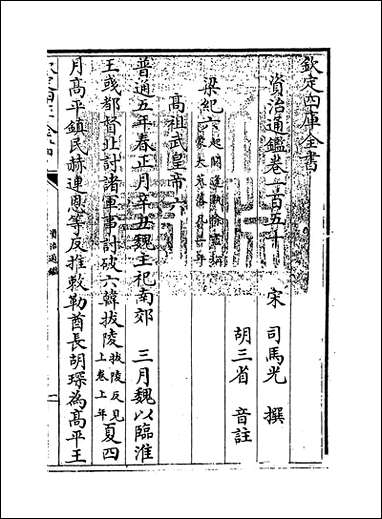 欽定四庫全書
資治通鑑卷一百五十
宋 司馬光 撰
胡三省 音註
梁紀六起閼逢執徐盡旃蒙大荒落凡二年
高祖武皇帝六
普通五年春正月辛丑魏主祀南郊 三月魏以臨淮
王彧都督北討諸軍事討破六韓拔陵拔陵反見上卷上年夏四
月高平鎮民赫連恩等反推敕勒酋長胡琛為高平王
資治通鑑